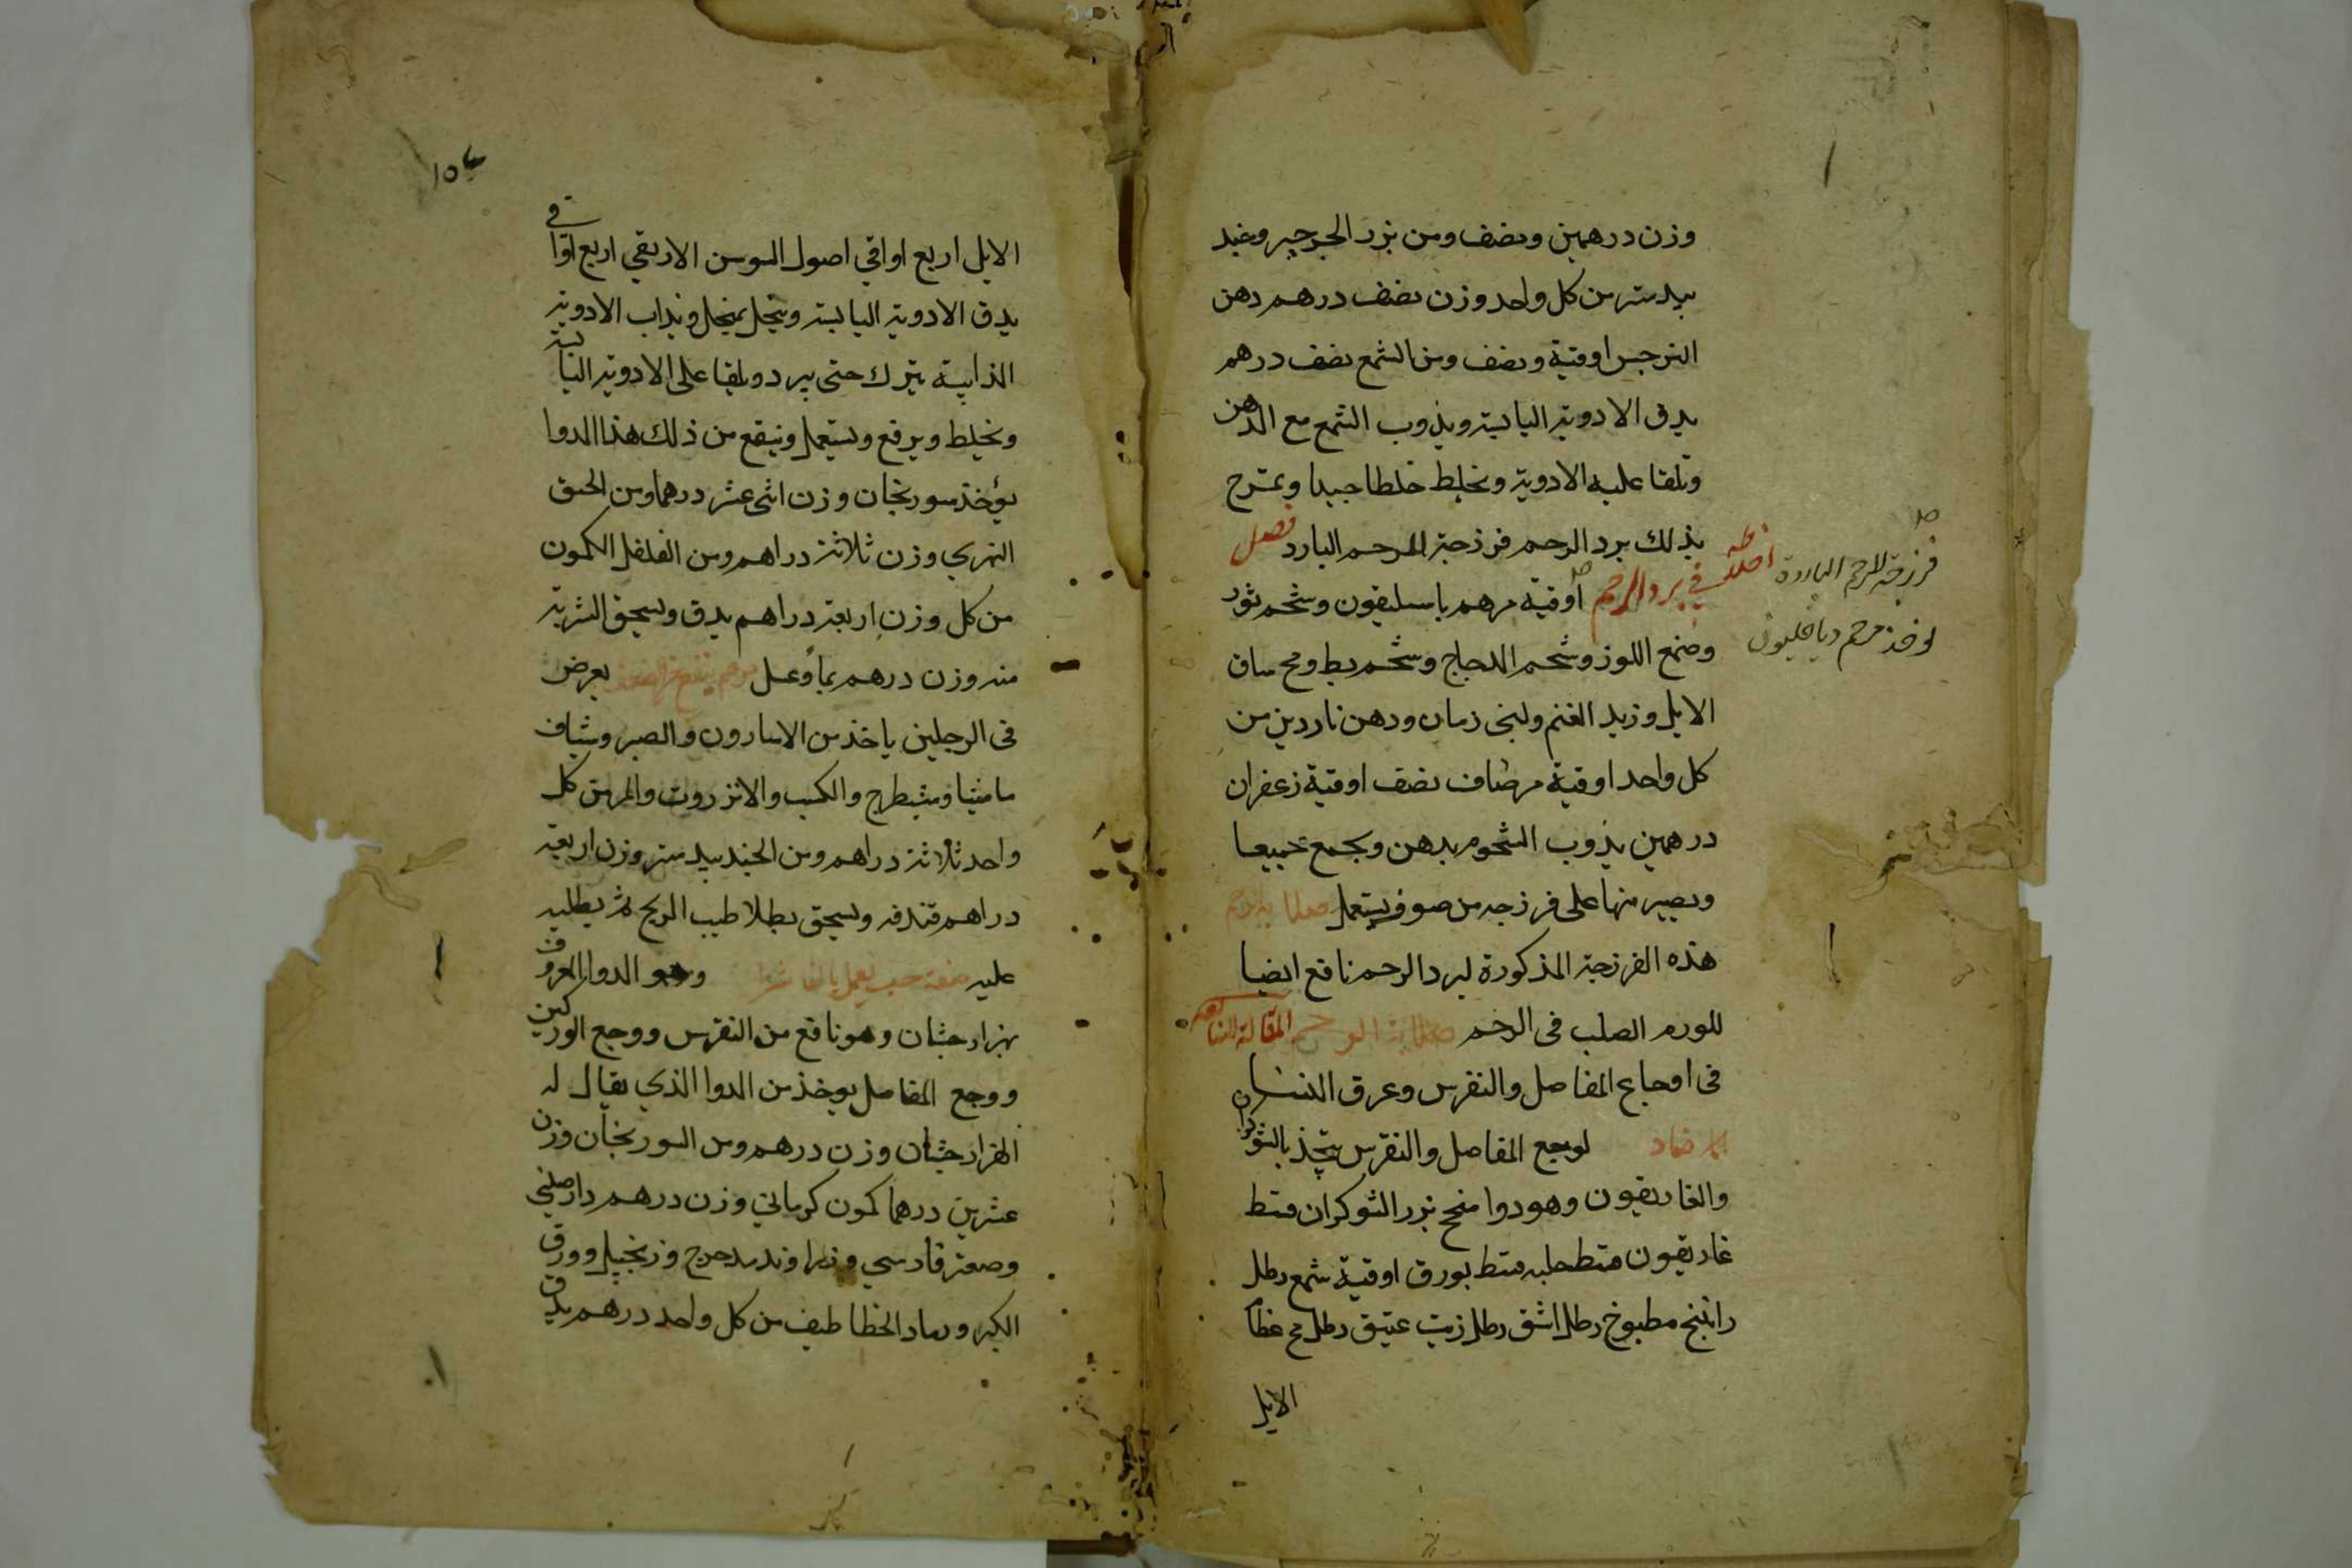 وزن درهمين ونصف ومن بزر الجرجير وخبد
بيدستر من كل واحد وزن نصف درهم دهن
النرجس اوقية ونصف ومن الشمع نصف درهم
يدق الادوية اليابسة ويذوب الشمع مع الدهن
وتلقا عليه الادوية وتخلط خلطا جيدا وتمرخ
بذلك برد الرحم فرزجة الرحم البارد فصل
في برد الرحم اوقية مرهم باسليقون وشحم ثور
فرزجة للرحم الباردة اخلاطه
يوخذ مرهم دياخليون
وصمغ اللوز وشحم الدجاج وشحم بط ومخ ساق
الايل وزبد الغنم ولبنى رمان ودهن ناردين من
كل واحد اوقية مرضاف نصف اوقية زعفران
درهمين يذوب الشحوم بدهن ويجمع جميعا
ويصير منها على فرزجه من صوف يستعمل
هذه الفرزجة المذكورة لبرد الرحم نافع ايضا
للورم الصلب فى الرحم صلابة الرحم المقالة
فى اوجاع المفاصل والنقرس وعرق النسا
ضماد لوجع المفاصل والنقرس يتخذ بالشوكران
والغاريقون وهو دوا منجح بزر الشوكران قسط
غاريقون قسط حلبه قسط بورق اوقية شمع رطل
راتينج مطبوخ رطل اشق رطل زيت عتيق رطل مخ عظا
الايل
الايل اربع اواقي اصول السوسن الازيقي اربع اواقي
يدق الادوية اليابسة وينخل بمنخل ويذاب الادوية
الذايبة يترك حتى يبرد ويلقا على الادوية اليابسة
ونخلط ويرفع ويستعمل وينفع من ذلك هذا الدوا
يؤخذ سورنجان وزن اثنى عشر درهما ومن الحبق
النهري وزن ثلاثة دراهم ومن الفلفل الكمون
من كل وزن اربعة دراهم يدق ويسحق الشربة
منه وزن درهم بما وعسل مرهم ينفع يعرض
فى الرجلين ياخذ من الاسارون والصبر وشياف
ماميثا وشيطرج والكسب والانزروت والمر من كل
واحد ثلاثة دراهم ومن الجندبيدستر وزن اربعة
دراهم ويسحق بطلا طيب الريح ثم يطليه
عليه صفة حب يعمل بالفاشرا وهو الدوا المعروف
بهزارجشان وهو نافع من النقرس ووجع الوركين
ووجع المفاصل يوخذ من الدوا الذي يقال له
الهزارجشان وزن درهم ومن السورنجان وزن
عشرين درهما كمون كرماني وزن درهم دارصيني
وصعتر فارسي وزراوند مدحرج وزنجبيل وورق
الكبر ورماد الخطاطيف من كل واحد درهم يدق